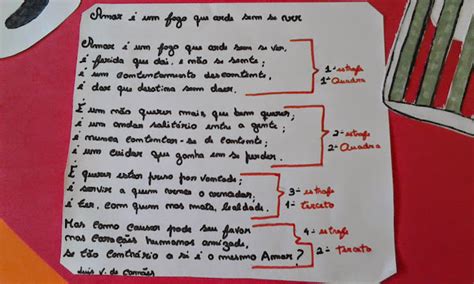 Amar é um fogo que arde sem se ver
Amar é um fogo que arde sem se ver,
é ferida que doi, e não se sente;
é um contentamento descontente,
é dor que desatina sem doer.
1ª estrofe
1ª Quadra
É um não querer mais que bem querer;
é um andar solitário entre a gente;
é nunca contentar-se de contente;
é um cuidar que ganha em se perder.
2ª estrofe
2ª Quadra
É querer estar preso por vontade;
é servir a quem vence o vencedor;
é ter, com quem nos mata, lealdade.
3ª estrofe
1ª terceto
Mas como causar pode seu favor
nos corações humanos amizade,
se tão contrário a si é o mesmo Amor?
4ª estrofe
2ª terceto
Luís V. de Camões